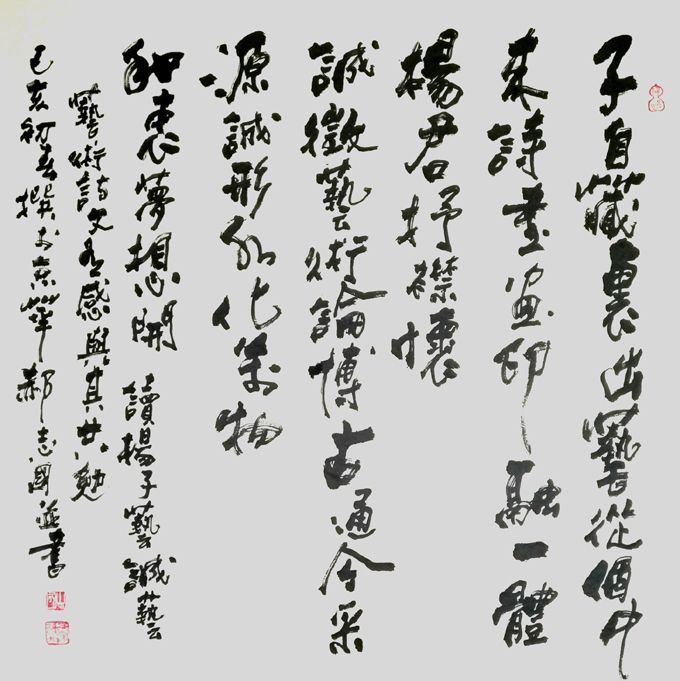 子自藏裏出藝從個中
來詩書画印融一體
楊君抒襟懷
誠徵藝術論博古通今采
源誠形外化萬物
和衷夢想開 讀楊子藝誠藝
藝術詩文有感與其共勉
己亥初春撰於京華郝志國並書